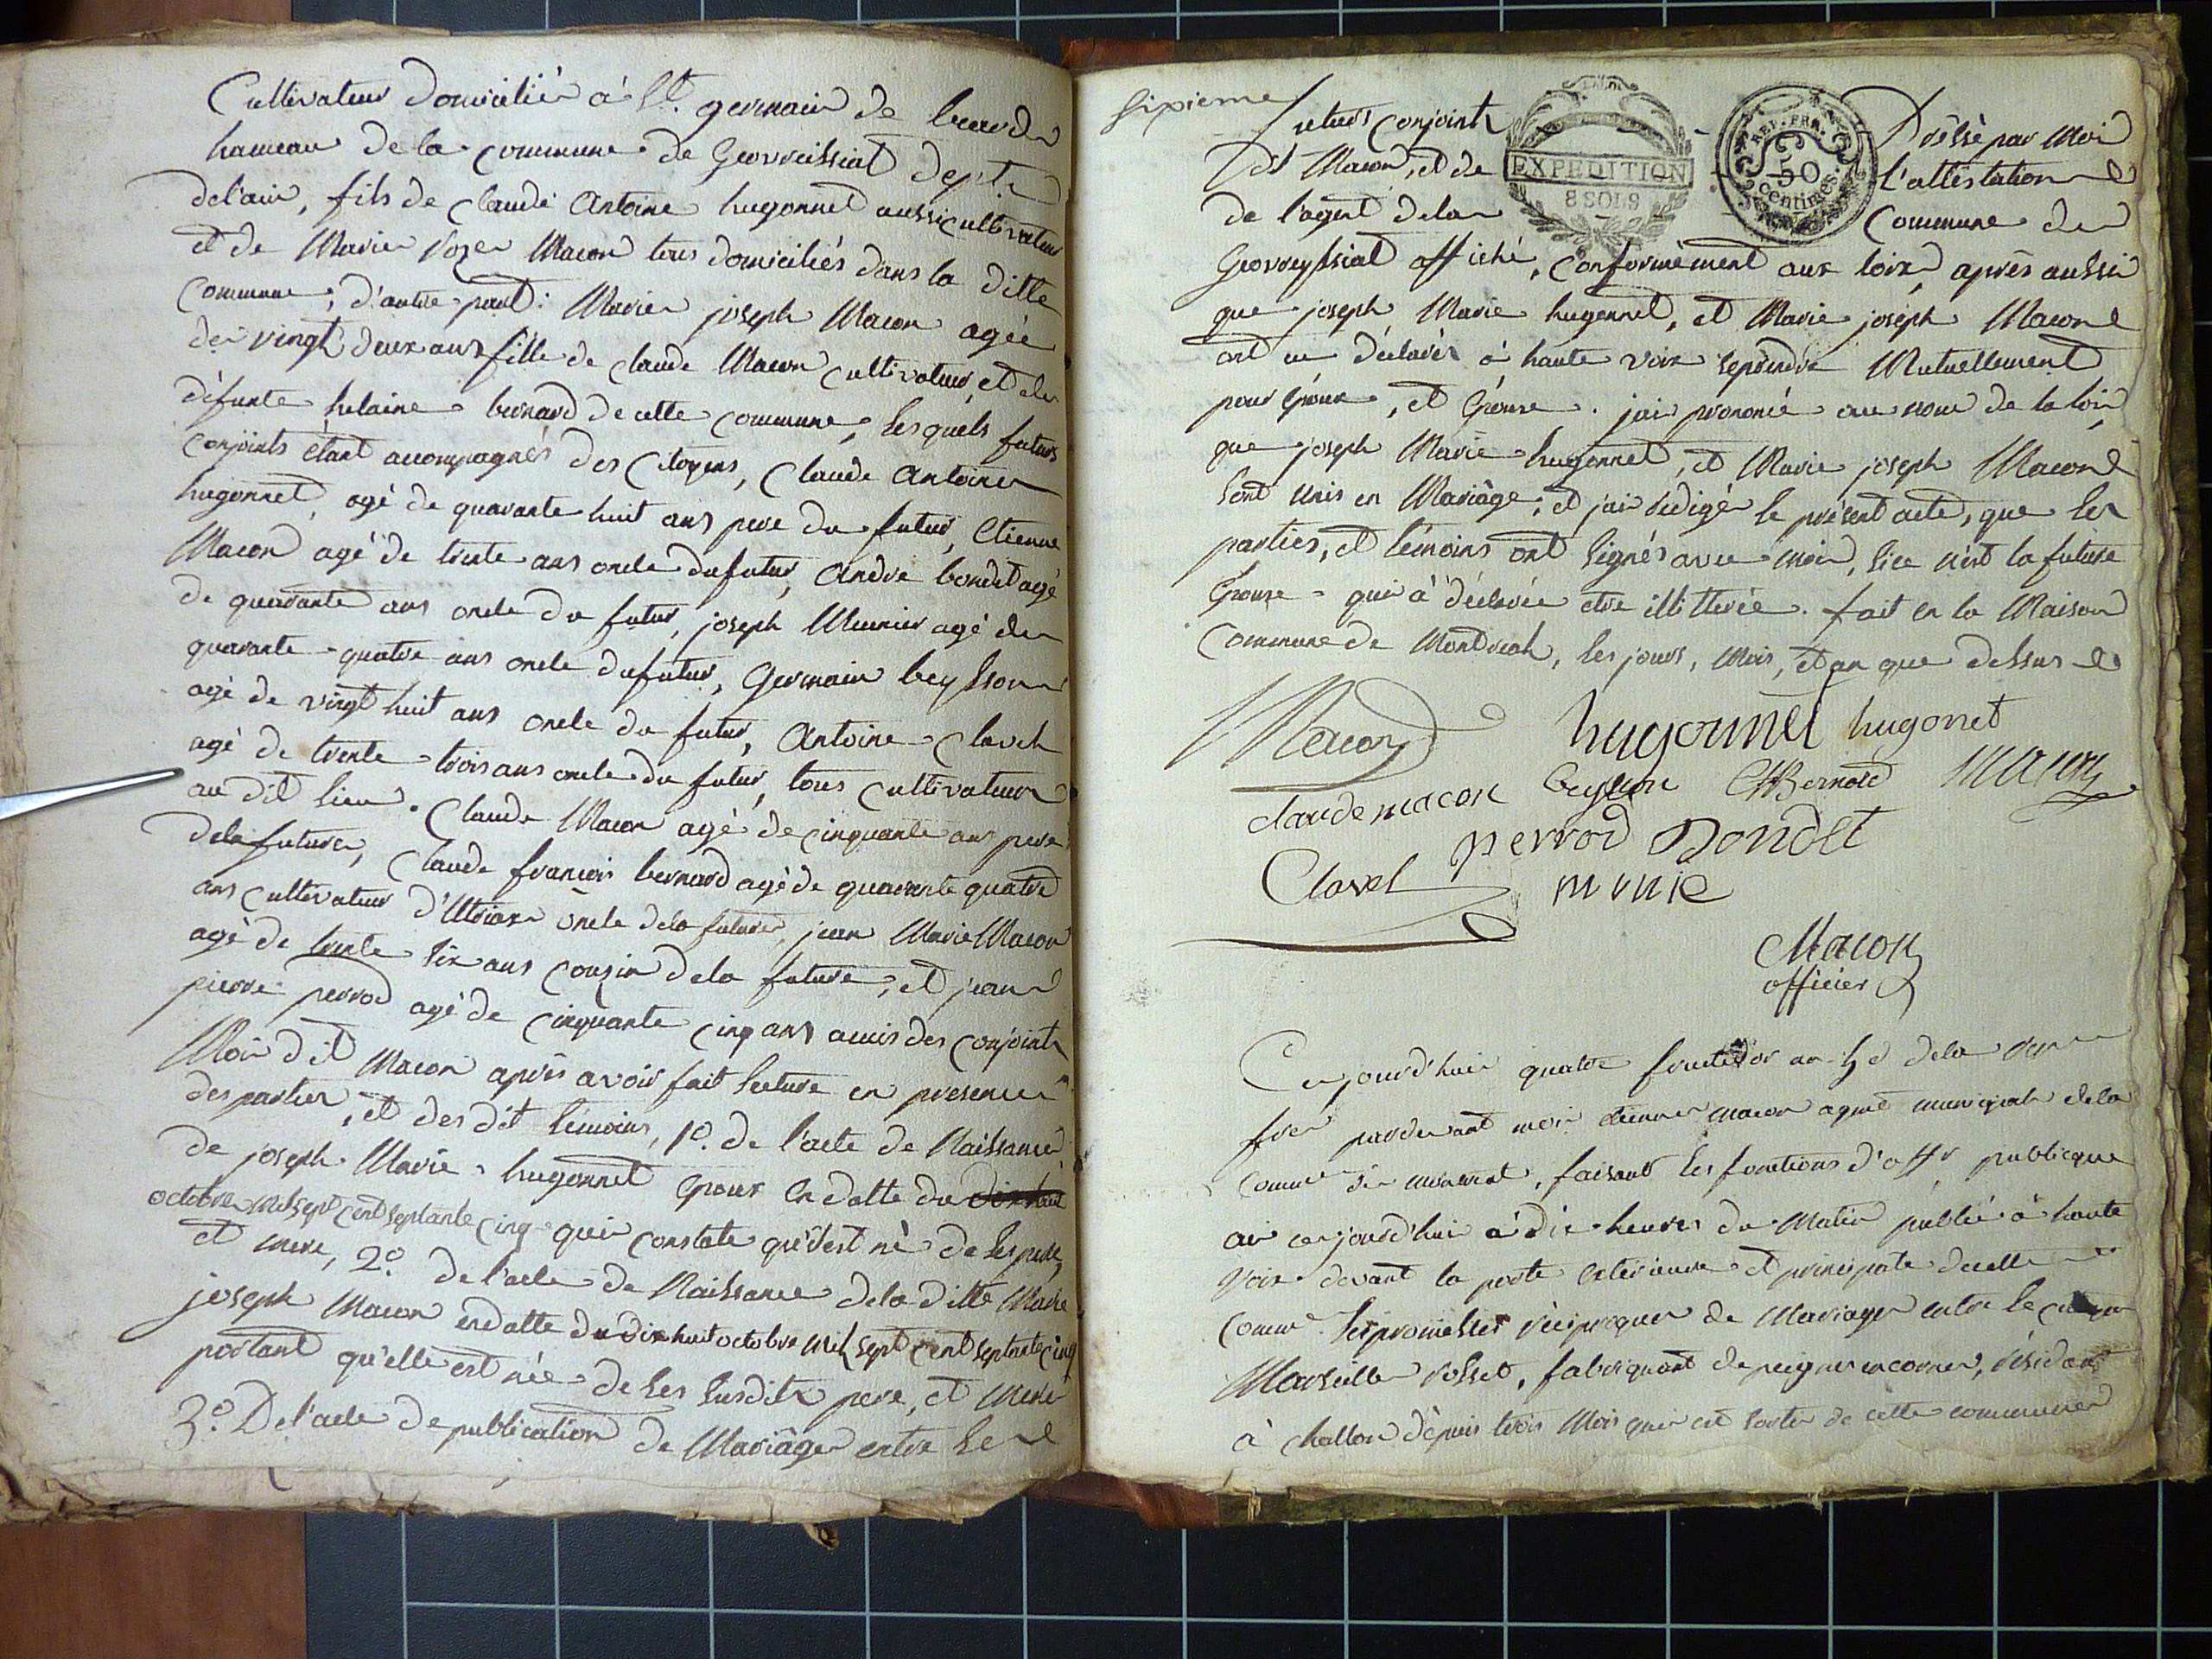 Cultivateur domicilié à St. germain de beard
hameau de la commune de Geovreissiat dept.
de l'ain, fils de Claude Antoine hugonnet aussi cultivateur
et de Marie Roze Macon tous domiciliés dans la ditte
commune; d'autre part: Marie joseph Macon agée
de vingt deux ans fille de Claude Macon cultivateur, et de
défunte helaine bernard de cette commune, lesquels futurs
conjoints étant accompagnés des Citoyens, Claude Antoine
hugonnet, agé de quarante huit ans pere du futur, Etienne
Macon agé de trente ans oncle du futur, André bondet agé
de quarante ans oncle du futur, joseph Munier agé de
quarante-quatre ans oncle du futur, Germain beysson
agé de vingt huit ans oncle du futur, Antoine Clavel
agé de trente-trois ans oncle du futur, tous cultivateurs
au dit lieu. Claude Macon agé de cinquante ans pere
de la future, Claude francois bernard agé de quarante quatre
ans cultivateur d'Utriaz oncle de la future, jean Marie Macon
agé de trente six ans couzin de la future, et jean
pierre perrod agé de cinquante cinq ans amis des conjoints
Moi dit Macon après avoir fait lecture en presence
des parties, et des dit témoins, 1o. de l'acte de Naissance
de joseph Marie hugonnet époux en datte du dix huit
octobre mil sept cent septante cinq qui constate qu'il est né de ses pere,
et mere, 2o. de l'acte de Naissance de la ditte Marie
joseph Macon en datte du dix huit octobre mil sept cent septante cinq
portant qu'elle est née de ses susdits pere, et mere
3o. De l'acte de publication de Mariâge entre les
sixieme
futurs conjoints Dréssé par Moi
dit Macon, et de l'attéstation
de l'agent de la commune de
EXPEDITION
8 SOLS
REP. FRA.
50
Centimes.
Geovreyssiat affiché, conformément aux loix, après aussi
que joseph Marie hugonnet, et Marie joseph Macon
ont eu déclarés à haute voix se prendre Mutuellement
pour époux, et épouse. jai prononcé au nom de la loi
que joseph Marie hugonnet, et Marie joseph Macon
sont unis en Mariâge; et j'ai rédigé le présent acte, que les
parties, et témoins ont signés avec moi, si ce n'est la future
épouse qui à déclarée etre illitterée. fait en la Maison
commune de Montreal, les jours, Mois, et an que dessus
Macon hugonnet hugonnet
claude macon beysson Bernard Macon
perrod Bondet
Clavel munie
Macon
officier
Ce jourd'hui quatre fructidor an 5e de la
par devant moi étienne macon agent municipal de la
comme de montreal, faisant les fonctions d'offr publicque
ai ce jourd'hui à dix heures du Matin publié à haute
voix devant la porte exterieure et principale de cette
comme les promesses réciproques de Mariage entre le citoyen
Marseille rosset, fabriquant de peignes en cornes, résidant
à challon dépuis trois Mois qui est sortie de cette commune